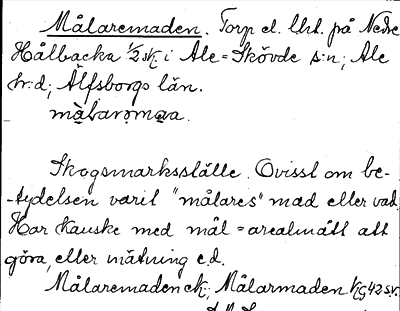 Målaremaden. Torp el. lht. på Nedre
Hålbacka 1/2 sk. i Ale=Skövde s:n; Ale
hrd; Älfsborgs län.
Skogsmarksställe. Ovisst om be-
-tydelsen varit "målares" mad eller vad.
Har kanske med mål = arealmått att
göra, eller mätning e.d.
Målaremaden ek; Målarmaden